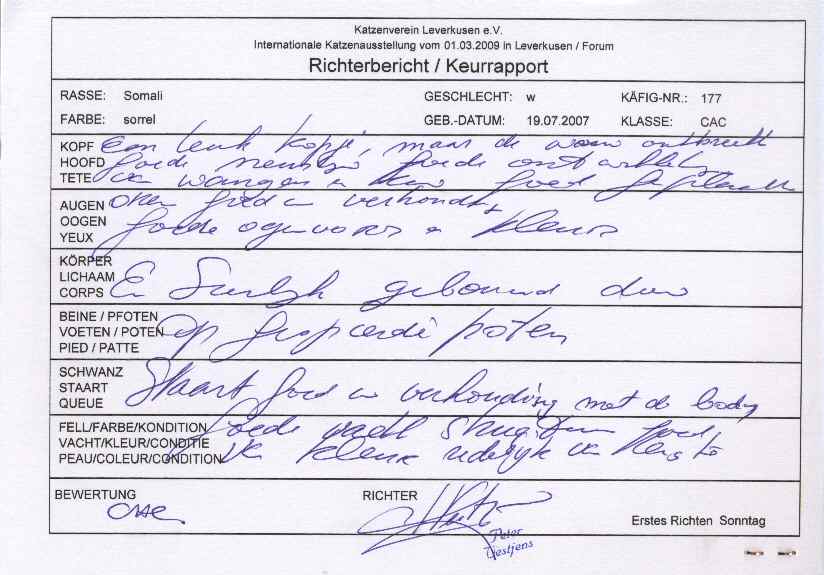 Katzenverein Leverkusen e.V.
Internationale Katzenausstellung vom 01.03.2009 in Leverkusen / Forum
Richterbericht / Keurrapport
RASSE: Somali GESCHLECHT: w KÄFIG-NR.: 177
FARBE: sorrel GEB.-DATUM: 19.07.2007 KLASSE: CAC
KOPF Een leuk kopje, maar de ontbreekt
HOOFD goede goede
TETE van wangen en kin goed geplaatst
AUGEN oren goed in verhouding
OOGEN goede oogvorm en kleur
YEUX
KÖRPER
LICHAAM
CORPS En gebouwd dier
BEINE / PFOTEN
VOETEN / POTEN op poten
PIED / PATTE
SCHWANZ
STAART Staart goed in verhouding met de body
QUEUE
FELL/FARBE/KONDITION goede vacht structuur goed
VACHT/KLEUR/CONDITIE van kleur
PEAU/COLEUR/CONDITION
BEWERTUNG RICHTER
Peter
Erstes Richten Sonntag